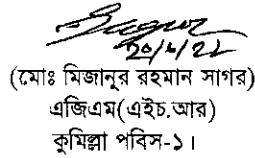 ২০/৬/২২
(মোঃ মিজানুর রহমান সাগর)
এজিএম(এইচ.আর)
কুমিল্লা পবিস-১।